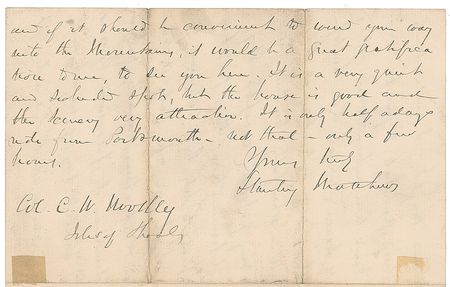 and if it should be convenient to wend your way
into the Mountains, it would be a great gratifica
tion to me, to see you here. It is a very quiet
and secluded spot, but the house is good and
the scenery very attractive. It is only half a days
ride from Portsmouth - not that - only a few
hours.
Yours truly
Stanley Matthews
Col. C. W.
Isles of Shoals